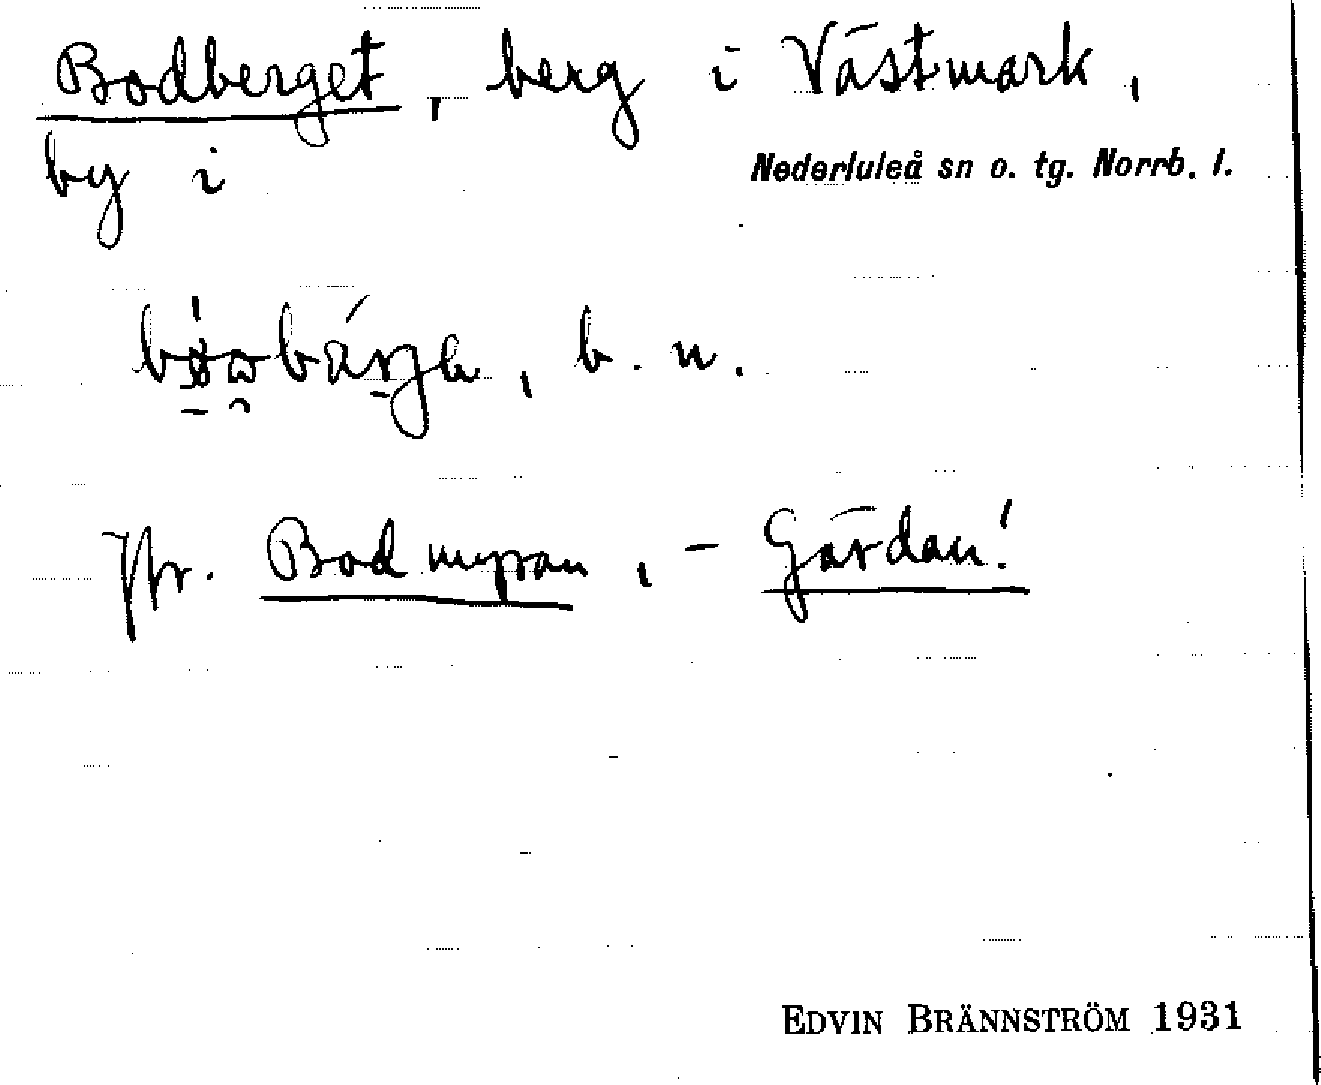 Bodberget, berg i Västmark,
by i Nederluleå sn o. tg. Norrb. l.
b. n.
Jfr. Bodmyran, - Gärdan!
EDVIN BRÄNNSTRÖM 1931